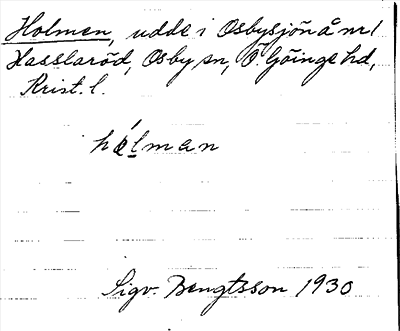 Holmen, udde i Osbysjön å nr 1
Hasslaröd, Osby sn, Ö. Göinge hd,
Krist. l.
hålman
Sigv. Bengtsson 1930